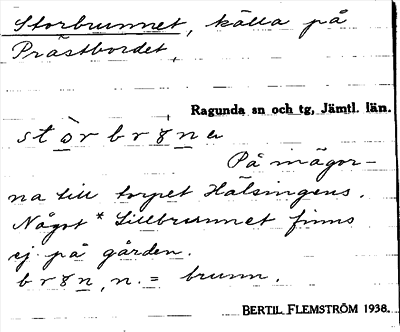 Storbrunnet, källa på
Prästbordet,
Ragunda sn och tg, Jämtl. län.
stòrbrɤna
På inägor-
na till torpet Hälsingens.
Något * Lillbrunnet finns
ej på gården.
brɤn, n. = brunn.
BERTIL FLEMSTRÖM 1938.